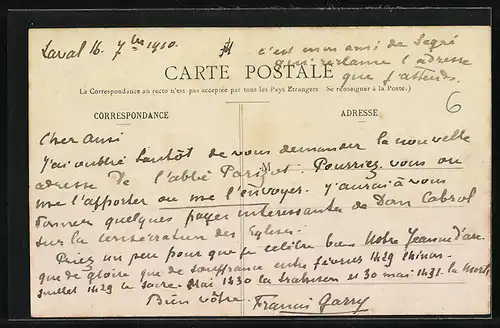 Laval 16. 7bre 1910.
c'est mon ami de Segré
qui réclame l'adresse
que j'attends.
CARTE POSTALE
La Correspondance au recto n'est pas acceptée par tous les Pays Étrangers. Se renseigner à la Poste.)
CORRESPONDANCE
ADRESSE
6
Cher ami
J'ai oublié tantôt de vous demander la nouvelle
M
adresse de l'abbé Parizot. Pourriez vous ou
me l'apporter ou me l'envoyer. J'aurai à vous
donner quelques pages intéressantes de Dom Cabrol
sur la consécration des Eglises.
Priez un peu pour que je célèbre bien Notre Jeanne d'arc.
que de gloire que de souffrance entre février 1429 Chinon.
juillet 1429 le sacre. Mai 1430 la trahison et 30 mai 1431. la mort.
Bien vôtre.
Francis Garry